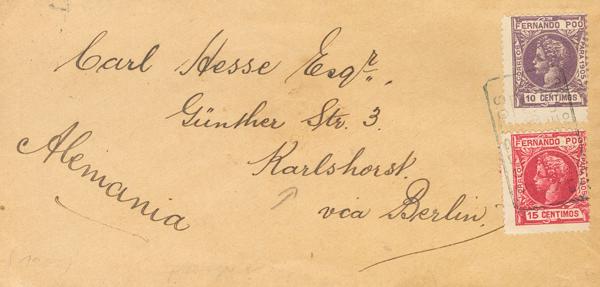 Carl Hesse Esqr.
Günther Str. 3.
Karlshorst.
via Berlin.
Alemania
FERNANDO POO
CORREOS
PARA 1905
10 CENTIMOS
FERNANDO POO
CORREOS
PARA 1905
15 CENTIMOS